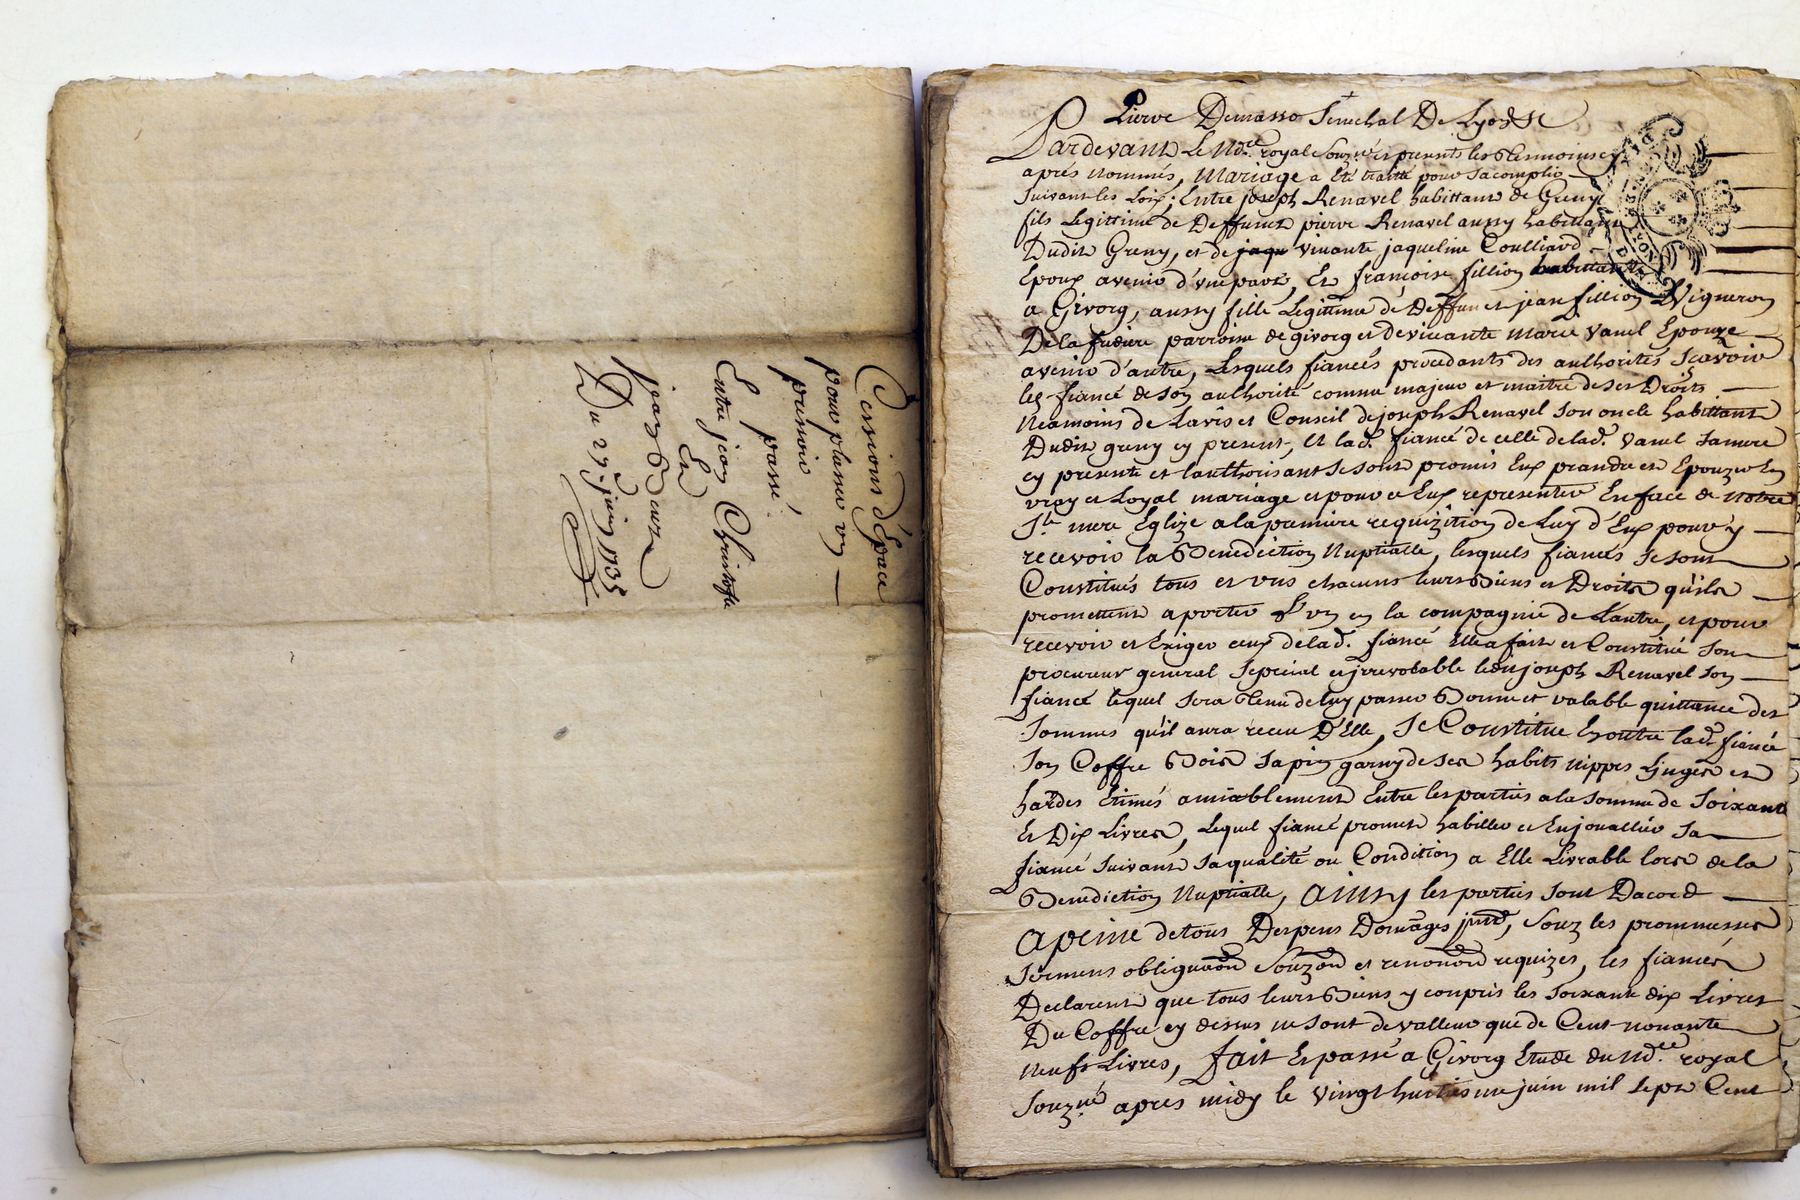 Cessions d'Epace
pour placer un
pressoir,
passé
Entre jean Christofle
Et
jean
Du 27e juin 1735
Pierre Demasso Senechal De Lyon
Pardevant Le Nore royal Souzné et presents les tesmoins cy
après nommés, Mariage a été traitté pour sacomplir
Suivant les Loix; Entre joseph Renavel habittant de Greny
fils Legittime de Deffunct pierre Renavel aussy habittant
Dudit Greny, et de jaqu vivante jaqueline Coulliard
Epoux avenir d'une part, Et francoise fillion habittant
a Givorg, aussy fille Legittime de Deffunct jean fillion Vigneron
De la parroisse de givorg et de vivante marie vanel Epouze
avenir d'autre, Lesquels fiancés procedants des authorités Scavoir
les fiancé de son authorité comme majeur et maitre de ses Droits
Neamoins de Lavis et Conseil de joseph Renavel son oncle habittant
Dudit greny cy present, Et lad. fiancé de celle de lad. vanel sa mere
cy presente et lauthorisant se sont promis Eux prandre et Epouzer En
vray et Loyal mariage et pour ce Eux representer En face de notre
Ste. mere Eglize a la premiere requizition de Luy d'Eux pour y
recevoir la Benediction Nuptialle, lesquels fiancés se sont
Constitués tous et uns chacuns leurs Biens et Droits qu'ils
promettent aporter L'un en la compagnie de Lautre, et pour
recevoir et Exiger ceux de lad. fiancé Elle a fait et Constitué son
procureur general Special et jrrevocable led. joseph Renavel son
fiancé lequel sera tenu de luy passer Bonne et valable quittance des
Sommes qu'il aura receu D'Elle, Se Constitue En outre lad. fiancé
Son Coffre Bois sapin garny de ses habits nippes Linges et
hardes Etimés amiablement Entre les parties a la somme de Soixante
Et Dix Livres, Lequel fiancé promet habiller et Enjoualler sa
fiancé suivant sa qualité ou Condition a Elle Livrable lors de la
Benediction Nuptialle, ainsy les parties sont Dacord
a peine de tous Despens Domages , Souz les prommesses
Sermens obligaon Souzon et renonon requizes, les fiancés
Declarent que tous leurs Biens y conpris les soixante dix Livres
Du Coffre cy dessus ne sont de valleur que de Cent nonante
neufs Livres, fait Et passé a Givorg Etude du Nore royal
Souzné apres midy le vingt huitiesme juin mil sept Cent